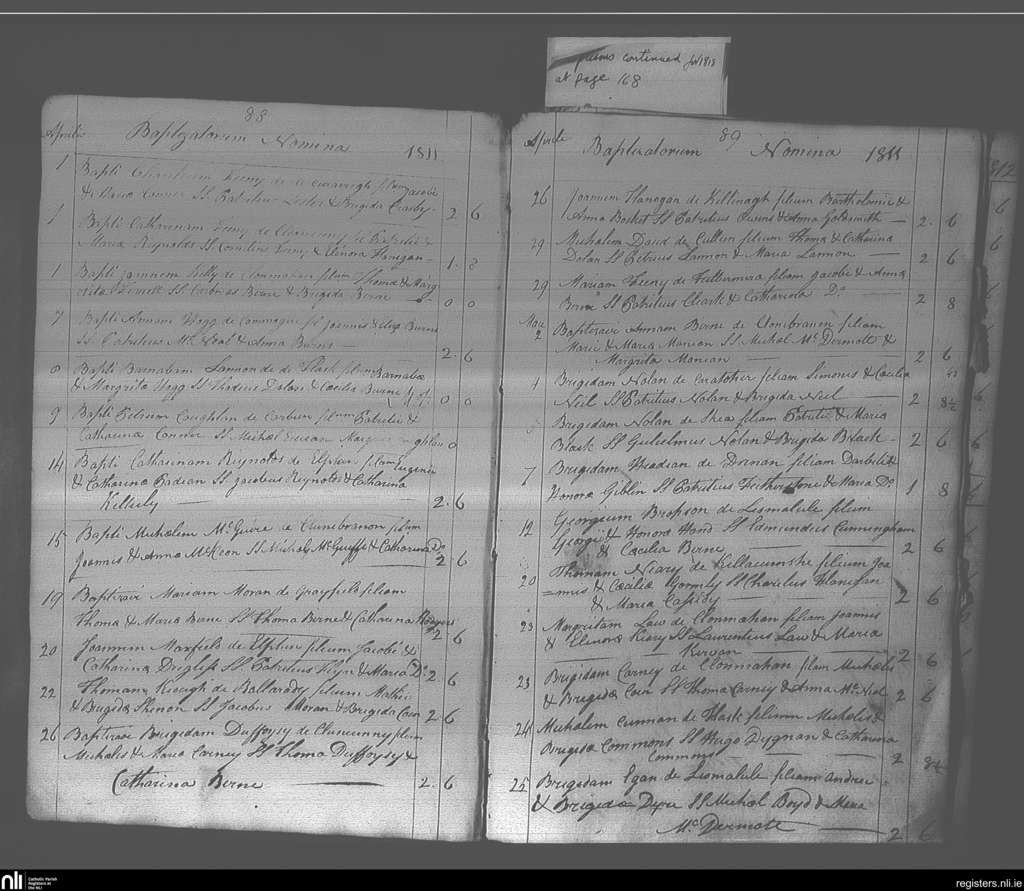 continued for 1813
at page 168
88
Aprilis Baptizatorum Nomina 1811
1 Bapti
& Maria Connor SS Patritius & Brigida 2 6
1 Bapti Catharinam de Patritii &
Maria Reynolds SS Cornelius & Elenora Flanigan 1 8
1 Bapti Joannem Kelly de Clonmahan filium Thoma & Marg
SS & Brigida Birne 0 0
7 Bapti Annam Hogg de Cammogue fil Joannis & Birne
SS Patritius Mc Neal & Anna Burns 2 6
8 Bapti Barnabam Lannon de Flask filium Barnaba
& Margrita Hogg SS Thadeus Dolan & Cacilia Burne 0 0
9 Bapti Petrum Coughlan de Corbum filium Patritii &
Catharina Connor SS Michol 0
14 Bapti Catharinam Reynolds de Elphin filiam Eugenii
& Catharina Badian SS Jacobus Reynolds & Catharina
Killuly 2 6
15 Bapti Micholem Mc Guire de Clunebranon filium
Joannis & Anna McKeon SS Michol Mc Guffe & Catharina Do 2 6
19 Baptizavi Mariam Moran de Grayfield filiam
Thoma & Maria Birne SS Thoma Birne & Catharina Rodgers 2 6
20 Joannem Maxfield de Elphin filium Jacobi &
Catharina SS Patritius & Maria Do 2 6
22 Thomam Keough de Ballarady filium Mathii
& Brigida Shenon SS Jacobus Moran & Brigida Coin 2 6
26 Baptizavi Brigidam Duffoysy de filiam
Micholis & Maria Carney SS Thoma Duffoysy &
Catharina Birne 2. 6
89
Aprile Baptizatorum Nomina 1811
26 Joannem Flanagan de Killinagh filium Bartholomii &
Anna Bosket SS Patritius Owens & Anna Goldsmith 2. 6
29 Micholem Daud de Cullin filium Thoma & Catharina
Dolan SS Petrus Lannon & Maria Lannon 2 6
29 Mariam Feeny de filiam Jacobi & Anna
Birne SS Patritius Clark & Catharina Do 2 8
Maii
2 Baptizavi Annam Birne de Clonibranen filiam
Marii & Maria Manian SS Michol Mc Dermott &
Margrita Manian 2 6
4 Brigidam Nolan de filiam Simonis & Cacilia
Neil SS Patritius Nolan & Brigida Neil 2 8½
5 Brigidam Nolan de Shea filiam Patritii & Maria
Black SS Gulielmus Nolan & Brigida Black 2 6
7 Brigidam de filiam Darbii &
Honora Giblin SS Patritius Fetherstone & Maria Do 1 8
12 Georgium Brapson de Lismalule filium
Georgii & Honora Hand SS Edmundus Cunningham
& Cacilia Birne 2 6
20 Thomam Neary de filium Joa
=nnis & Cacilia Gormly SS Charelus Flanigan
& Maria Cassidy 2 6
23 Margritam Law de Clonmahan filiam Joannis
& Elenora Keary SS Laurentius Law & Maria
Kirwan 2 6
23 Brigidam Carney de Clonmahan filiam Micholis
& Brigida Coin SS Thoma Carney & Anna Mc Neal 2 6
24 Micholem Cunnan de Flask filium Micholis &
Brigida Commons SS Hugo Dygnan & Catharina
Commons 2 8½
25 Brigidam Egan de Lismalule filiam Andrii
& Brigida SS Michol Boyd & Maria
Mc Dermott 2 6
1812
nli Catholic Parish
Registers at
the NLI
registers.nli.ie